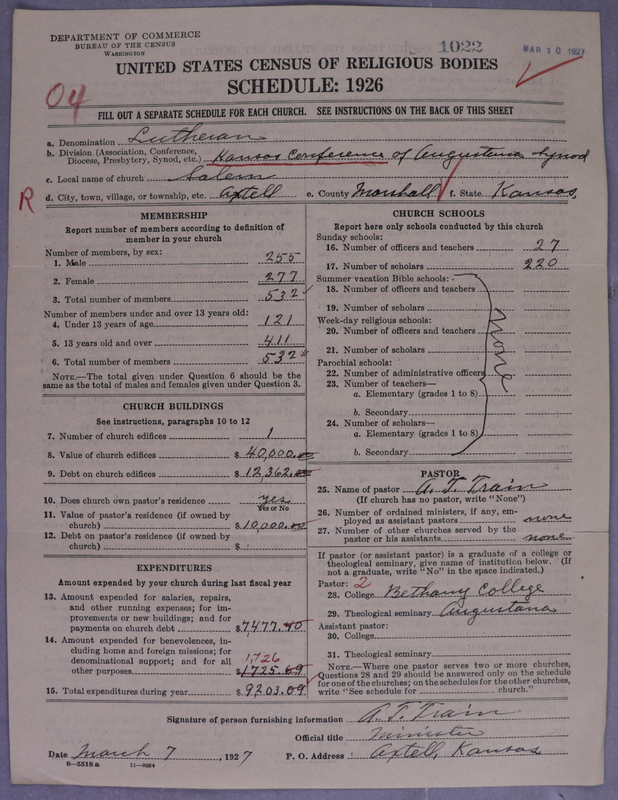 DEPARTMENT OF COMMERCE
BUREAU OF THE CENSUS
WASHINGTON
1022
MAR 10 1927
UNITED STATES CENSUS OF RELIGIOUS BODIES
SCHEDULE: 1926
04
FILL OUT A SEPARATE SCHEDULE FOR EACH CHURCH. SEE INSTRUCTIONS ON THE BACK OF THIS SHEET
a. Denomination Lutheran
b. Division (Association, Conference,
Diocese, Presbytery, Synod, etc.) Kansas Conference of Augustana Synod
c. Local name of church Salem
R
d. City, town, village, or township, etc. Axtell e. County Marshall f. State Kansas,
MEMBERSHIP
Report number of members according to definition of
member in your church
Number of members, by sex:
1. Male 255
2. Female 277
3. Total number of members 532
Number of members under and over 13 years old:
4. Under 13 years of age 121
5. 13 years old and over 411
6. Total number of members 532
NOTE.—The total given under Question 6 should be the
same as the total of males and females given under Question 3.
CHURCH BUILDINGS
See instructions, paragraphs 10 to 12
7. Number of church edifices 1
8. Value of church edifices $ 40,000.00
9. Debt on church edifices $ 12,362.00
10. Does church own pastor's residence yes
Yes or No
11. Value of pastor's residence (if owned by
church) $ 10,000.00
12. Debt on pastor's residence (if owned by
church) $
EXPENDITURES
Amount expended by your church during last fiscal year
13. Amount expended for salaries, repairs,
and other running expenses; for im-
provements or new buildings; and for
payments on church debt $7,477.40
14. Amount expended for benevolences, in-
cluding home and foreign missions; for
denominational support; and for all 1,726
other purposes $1725.69
15. Total expenditures during year $ 9203.09
CHURCH SCHOOLS
Report here only schools conducted by this church
Sunday schools:
16. Number of officers and teachers 27
17. Number of scholars 220
Summer vacation Bible schools:
18. Number of officers and teachers
19. Number of scholars
Week-day religious schools:
20. Number of officers and teachers
21. Number of scholars
Parochial schools:
22. Number of administrative officers
23. Number of teachers—
a. Elementary (grades 1 to 8)
b. Secondary
24. Number of scholars—
a. Elementary (grades 1 to 8)
b. Secondary
none
PASTOR
25. Name of pastor A. T. Train
(If church has no pastor, write "None")
26. Number of ordained ministers, if any, em-
ployed as assistant pastors none
27. Number of other churches served by the
pastor or his assistants none
If pastor (or assistant pastor) is a graduate of a college or
theological seminary, give name of institution below. (If
not a graduate, write "No" in the space indicated.)
Pastor: 2
28. College Bethany College
29. Theological seminary Augustana
Assistant pastor:
30. College
31. Theological seminary
NOTE.—Where one pastor serves two or more churches,
Questions 28 and 29 should be answered only on the schedule
for one of the churches; on the schedules for the other churches,
write "See schedule for church."
Signature of person furnishing information A. T. Train
Official title Minister
Date March 7, 1927 P. O. Address Axtell, Kansas
6—5318a 11—9554